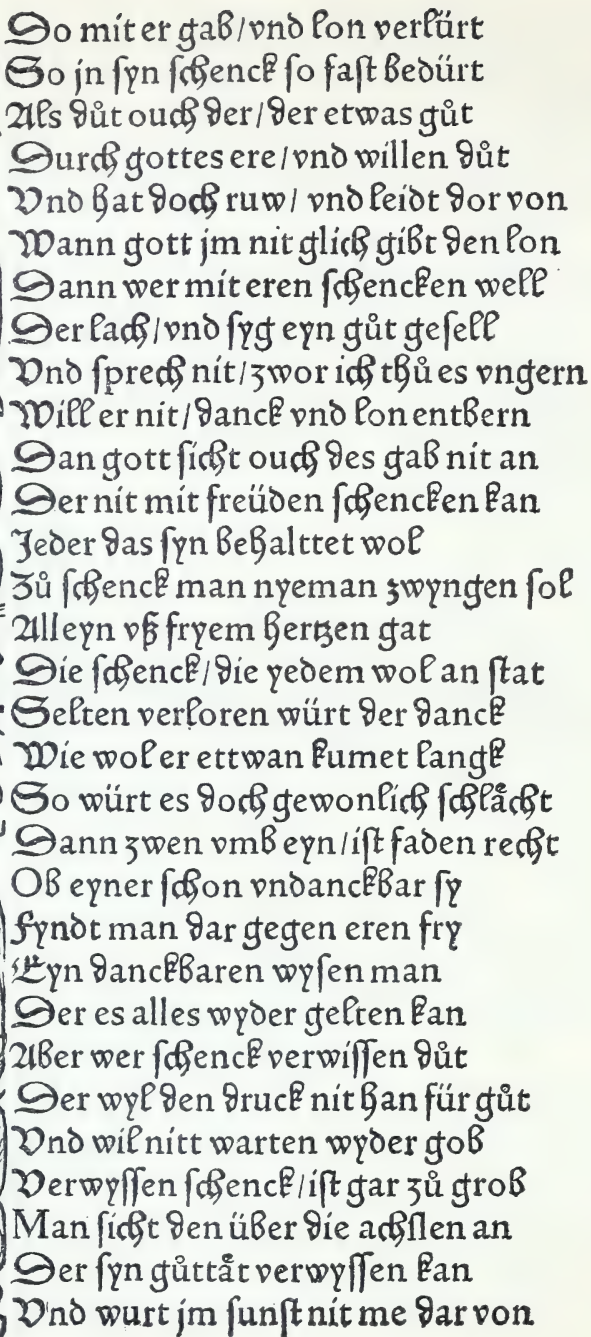 Do mit er gab/vnd lon verlürt
So jn syn schenck so fast bedürt
Als důt ouch der/der etwas gůt
Durch gottes ere/vnd willen důt
Vnd hat doch ruw/ vnd leidt dor von
Wann gott jm nit glich gibt den lon
Dann wer mit eren schencken well
Der lach/vnd syg eyn gůt gesell
Vnd sprech nit/zwor ich thů es vngern
Will er nit/danck vnd lon entbern
Dan gott sicht ouch des gab nit an
Der nit mit freüden schencken kan
Jeder das syn behalttet wol
Zů schenck man nyeman zwyngen sol
Alleyn vß fryem hertzen gat
Die schenck/die yedem wol an stat
Selten verloren würt der danck
Wie wol er ettwan kumet langk
So würt es doch gewonlich schlåcht
Dann zwen vmb eyn/ist faden recht
Ob eyner schon vndanckbar sy
Fyndt man dar gegen eren fry
Eyn danckbaren wysen man
Der es alles wyder gelten kan
Aber wer schenck verwissen důt
Der wyl den druck nit han für gůt
Vnd wil nitt warten wyder gob
Verwyssen schenck/ist gar zů grob
Man sicht den über die achslen an
Der syn gůttåt verwyssen kan
Vnd wurt jm sunst nit me dar von